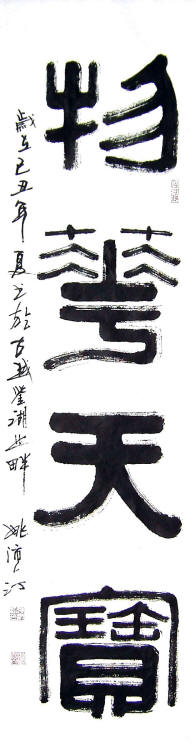 物華天寶
歲在己丑年夏之於古越鑒湖之畔 姚沛江